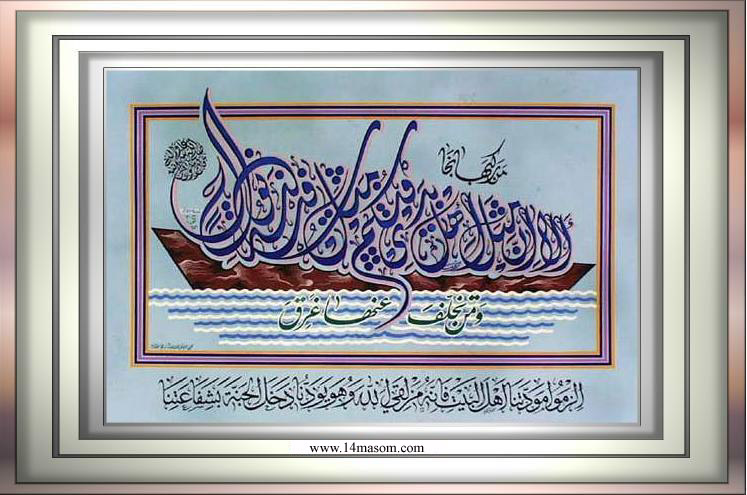 من ركبها نجا
ألا إن مثل أهل بيتي فيكم مثل سفينة نوح
وَمَن تخلَّفَ عنها غَرِقَ
إلزموا مودتنا أهل البيت فانه من لقي الله وهو يودنا دخل الجنة بشفاعتنا
www.14masom.com